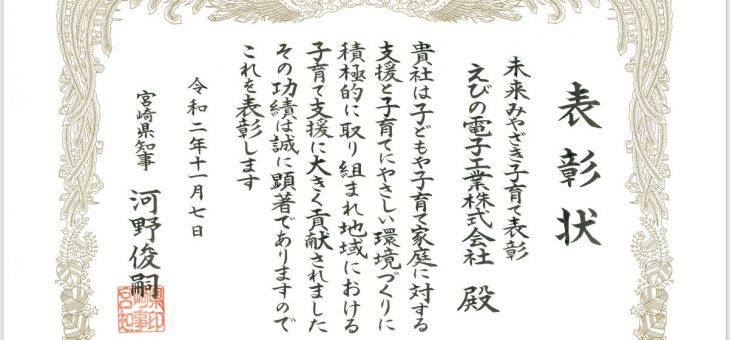 表彰状
未来みやざき子育て表彰
えびの電子工業株式会社 殿
貴社は子どもや子育て家庭に対する
支援と子育てにやさしい環境づくりに
積極的に取り組まれ地域における
子育て支援に大きく貢献されました
その功績は誠に顕著でありますので
これを表彰します
令和二年十一月七日
宮崎県知事 河野俊嗣